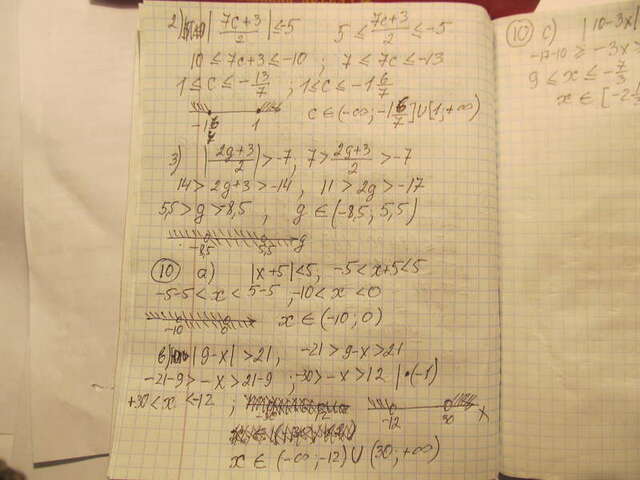 2) | 7c+3/2 | ≤ -5   5 ≤ 7c+3/2 ≤ -5
10 ≤ 7c+3 ≤ -10 ; 7 ≤ 7c ≤ -13
1 ≤ c ≤ -13/7 ; 1 ≤ c ≤ -1 6/7
-1 6/7   1   c ∈ (-∞; -1 6/7] ∪ [1; +∞)
3) | 2g+3/2 | > -7, 7 > 2g+3/2 > -7
14 > 2g+3 > -14, 11 > 2g > -17
5,5 > g > 8,5, g ∈ (-8,5; 5,5)
-8,5   5,5   g
10 a) |x+5|<5, -5<x+5<5
-5-5<x<5-5, -10<x<0
-10   0   x ∈ (-10; 0)
b) |9-x| > 21, -21 > 9-x > 21
-21-9 > -x > 21-9 ; -30 > -x > 12 | •(-1)
+30 < x < -12 ;   -12   30   x
x ∈ (-∞; -12) ∪ (30; +∞)
10 c) |10-3x
-17-10 ≥ -3x
9 ≤ x ≤ -7/3
x ∈ [-2